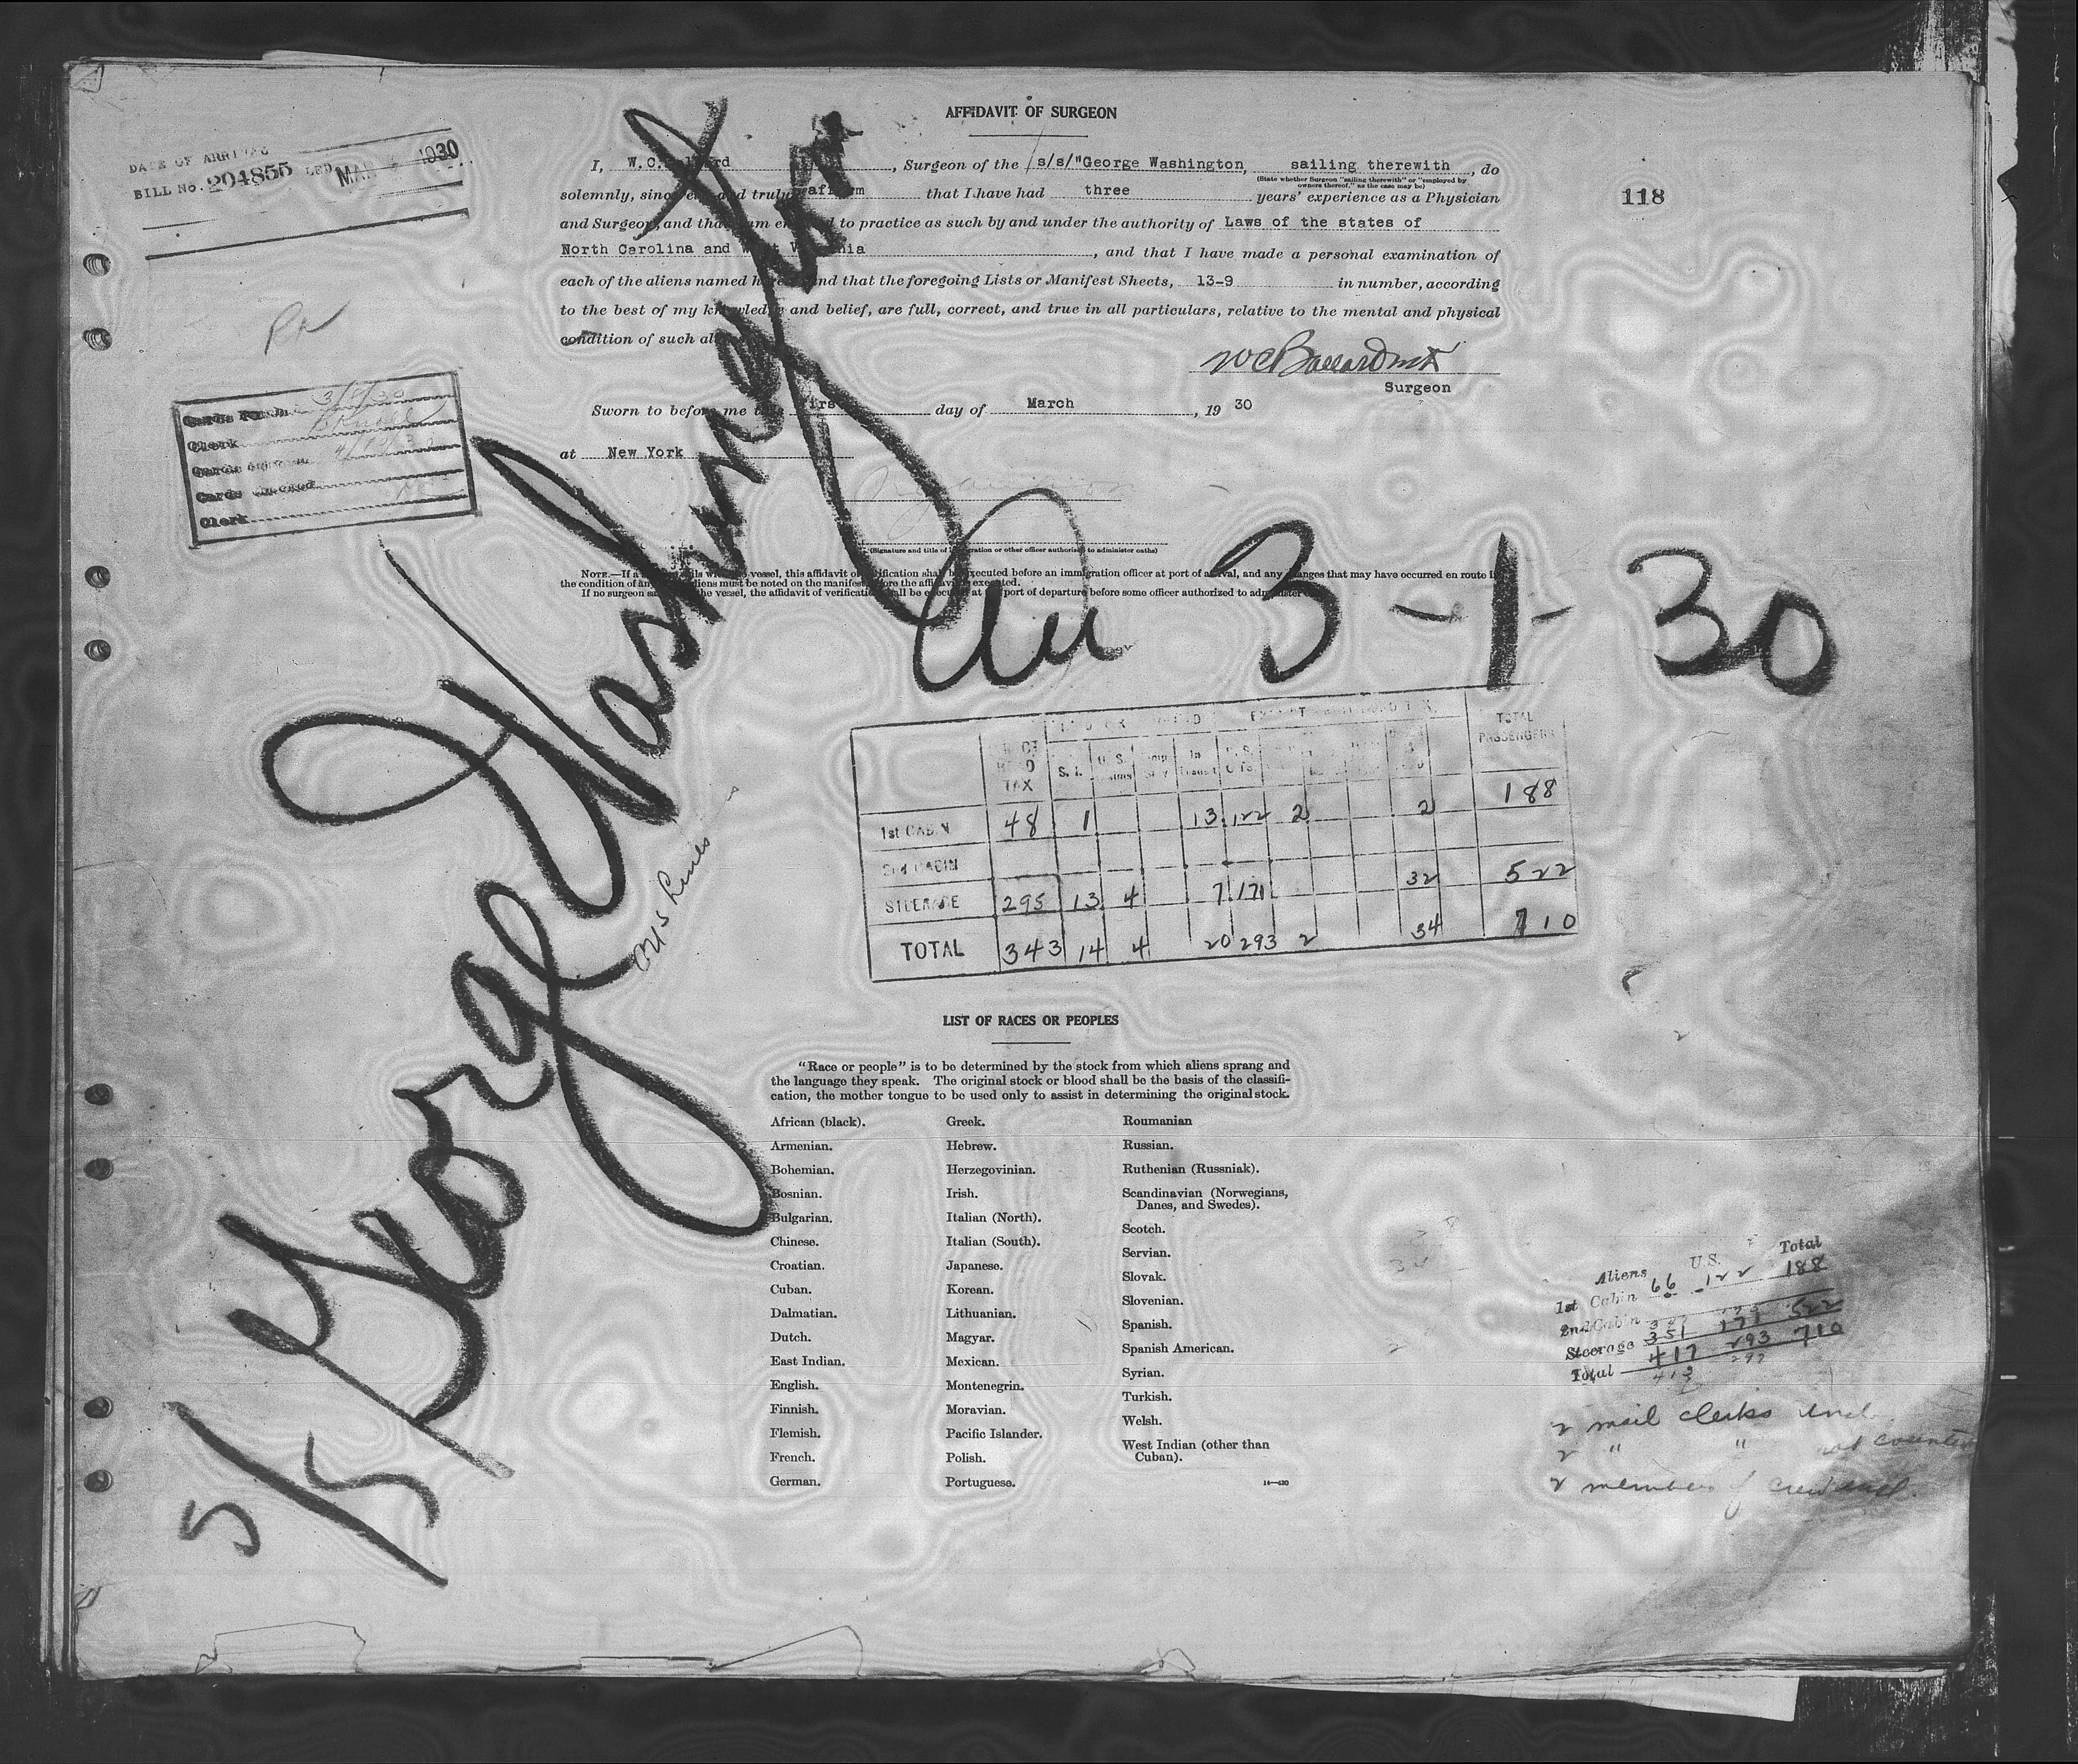 AFFIDAVIT OF SURGEON
DATE OF ARRIVAL
BILL No. 204855 MAR 1930
I, W.C. , Surgeon of the s/s/"George Washington, sailing therewith, do
(State whether Surgeon "sailing therewith" or "employed by owners thereof," as the case may be)
solemnly, sincerely and truly affirm that I have had three years' experience as a Physician
118
and Surgeon, and that am to practice as such by and under the authority of Laws of the states of
North Carolina and West Virginia, and that I have made a personal examination of
each of the aliens named and that the foregoing Lists or Manifest Sheets, 13-9 in number, according
to the best of my knowledge and belief, are full, correct, and true in all particulars, relative to the mental and physical
condition of such
W C Ballard
Surgeon
Sworn to before me day of March, 1930
at New York
Clerk
Clerk
(Signature and title of immigration or other officer authorized to administer oaths)
NOTE.—If a vessel, this affidavit of verification shall be executed before an immigration officer at port of arrival, and any changes that may have occurred en route
the condition of aliens must be noted on the manifest before the affidavit executed.
If no surgeon the vessel, the affidavit of verification shall be executed at port of departure before some officer authorized to administer
George Washington
3-1-30
5/5
TAX S. I. U. S. In Transit TOTAL PASSENGERS
1st CABIN 48 1 13 122 2 2 188
2nd CABIN
STEERAGE 295 13 4 7 171 32 522
TOTAL 343 14 4 20 293 2 34 710
LIST OF RACES OR PEOPLES
"Race or people" is to be determined by the stock from which aliens sprang and
the language they speak. The original stock or blood shall be the basis of the classifi-
cation, the mother tongue to be used only to assist in determining the original stock.
African (black).
Armenian.
Bohemian.
Bosnian.
Bulgarian.
Chinese.
Croatian.
Cuban.
Dalmatian.
Dutch.
East Indian.
English.
Finnish.
Flemish.
French.
German.
Greek.
Hebrew.
Herzegovinian.
Irish.
Italian (North).
Italian (South).
Japanese.
Korean.
Lithuanian.
Magyar.
Mexican.
Montenegrin.
Moravian.
Pacific Islander.
Polish.
Portuguese.
Roumanian
Russian.
Ruthenian (Russniak).
Scandinavian (Norwegians,
Danes, and Swedes).
Scotch.
Servian.
Slovak.
Slovenian.
Spanish.
Spanish American.
Syrian.
Turkish.
Welsh.
West Indian (other than
Cuban).
Aliens U.S. Total
1st Cabin 66 122 188
2nd Cabin
Steerage 351 171 522
Total 417 293 710
413 297
2 mail clerks incl.
2 " " not counted
2 members of crew incl.